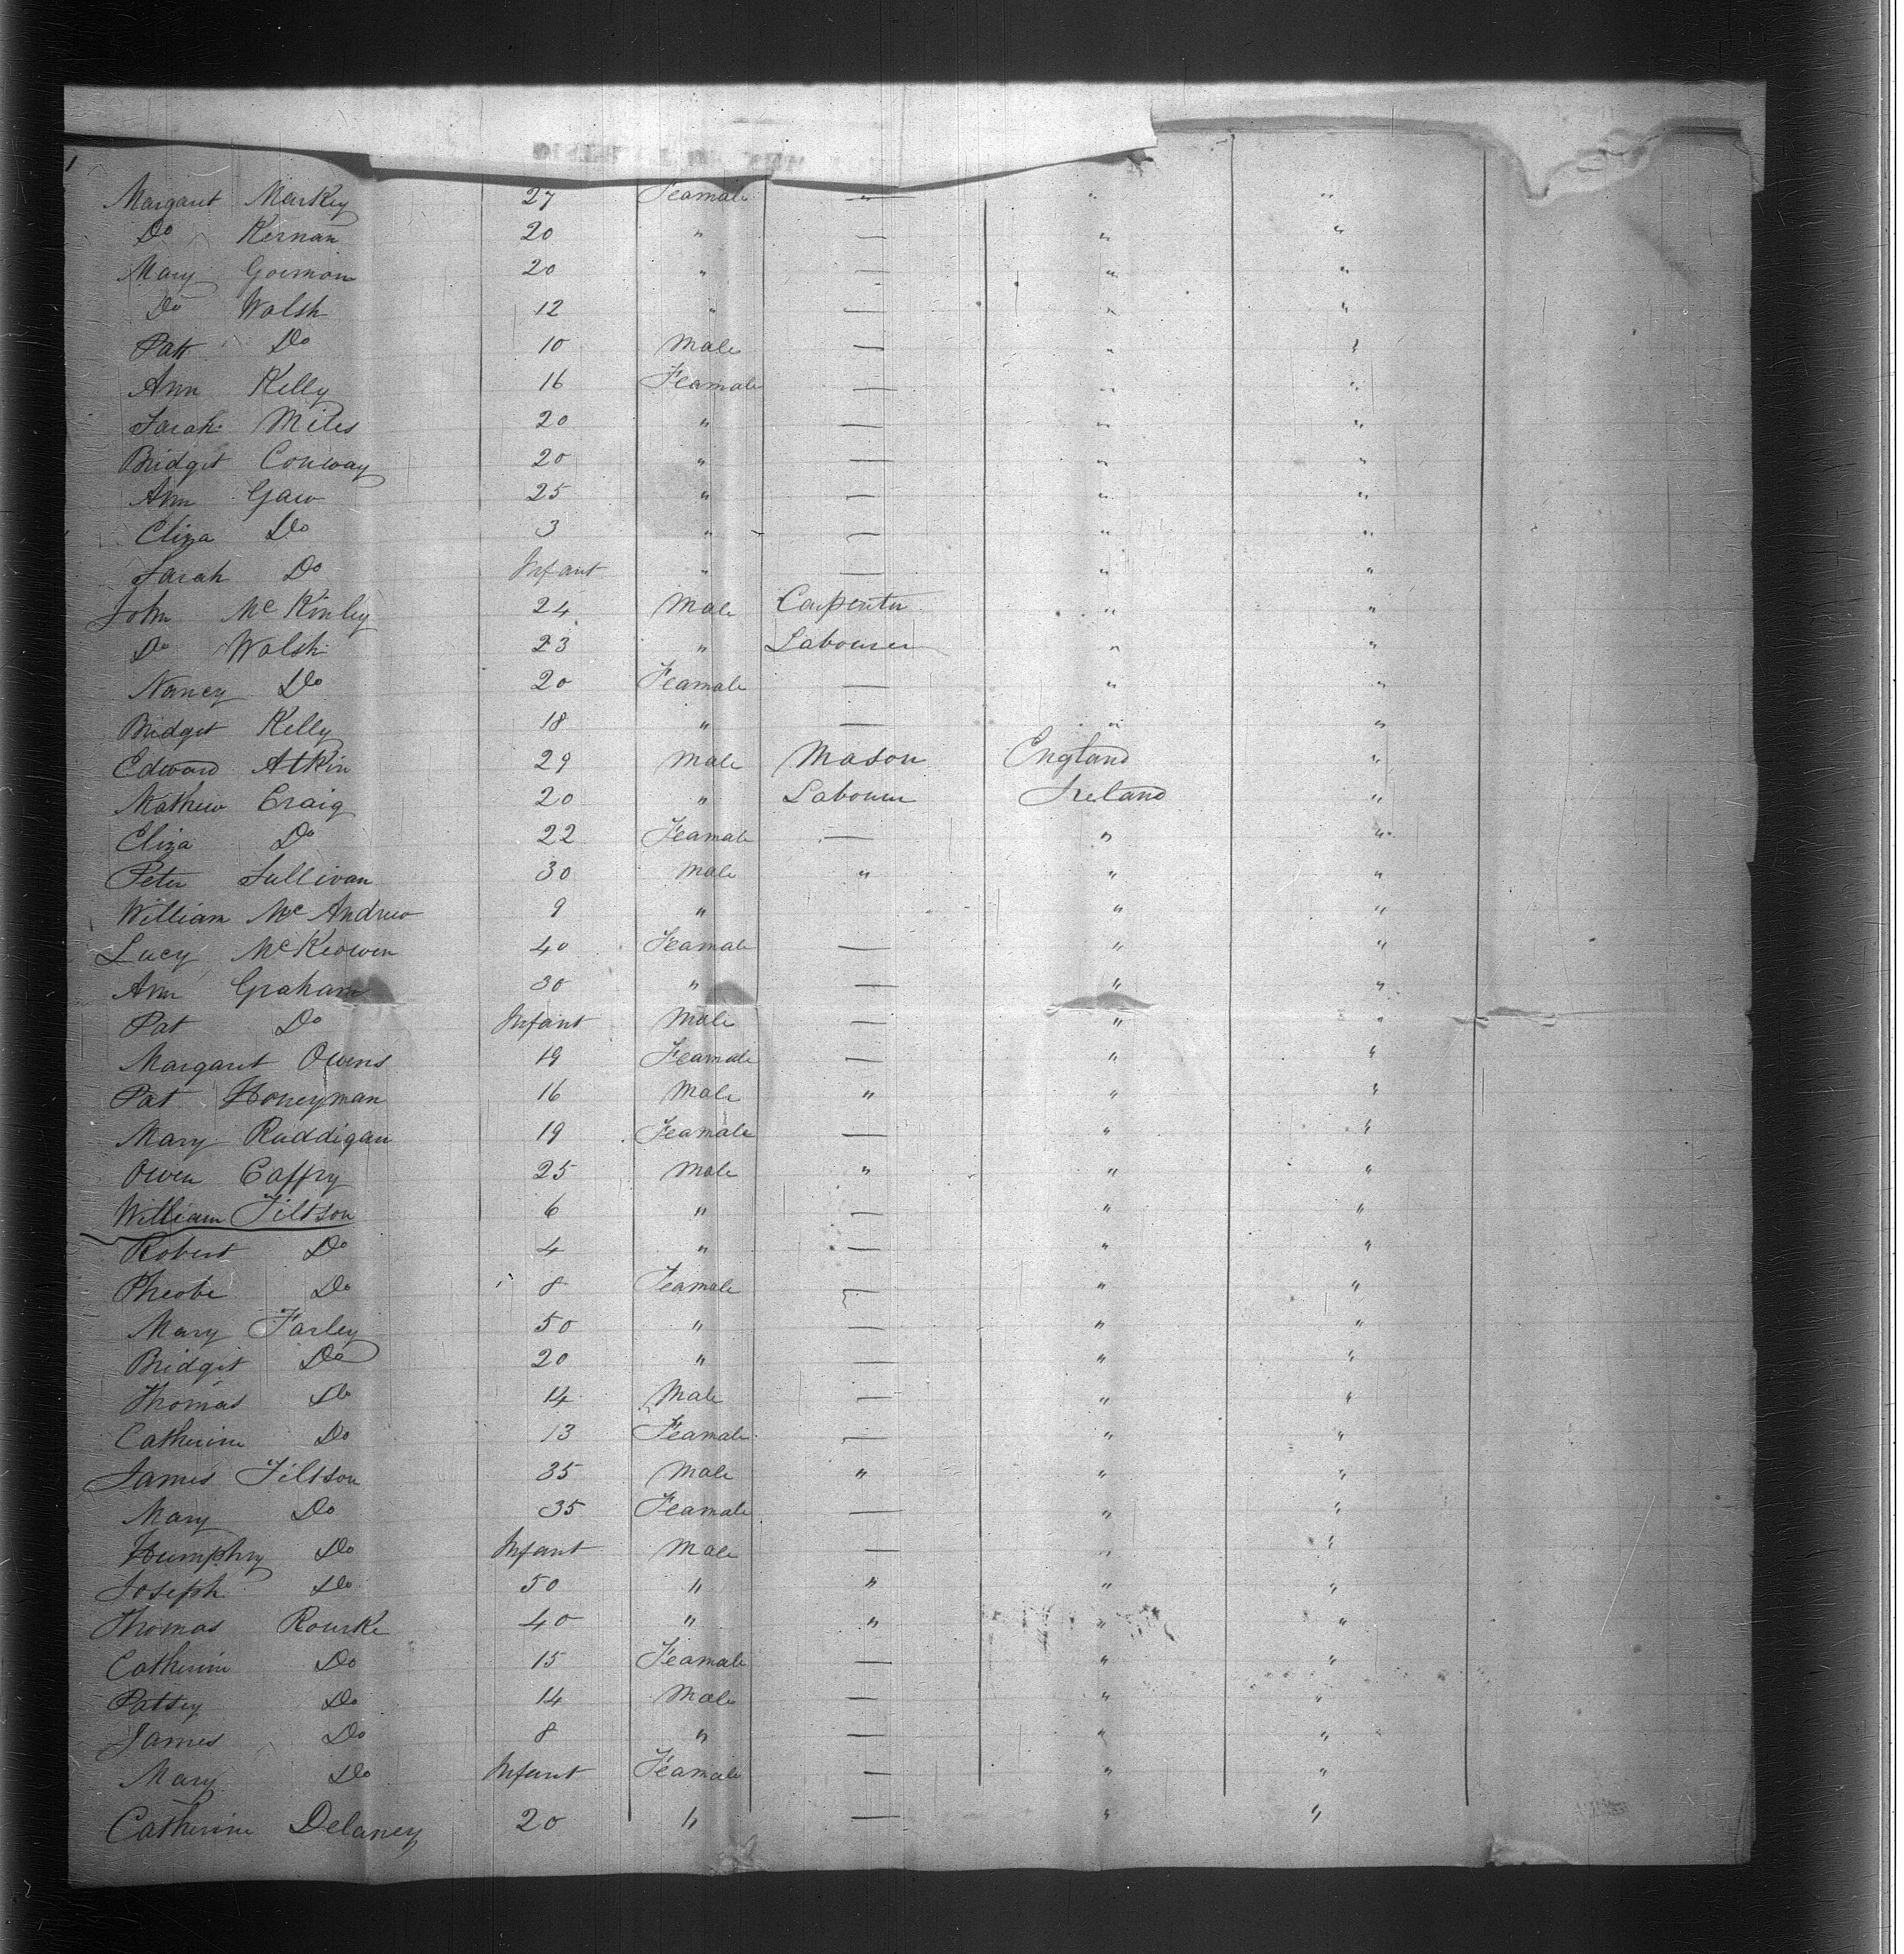 Margaret Markey 27 Feamale " " "
Do Kernan 20 " — " "
Mary Gorman 20 " — " "
Do Walsh 12 " — " "
Patt Do 10 Male — " "
Ann Kelly 16 Feamale — " "
Sarah Miles 20 " — " "
Bridget Conway 20 " — " "
Ann Gaw 25 " — " "
Eliza Do 3 " — " "
Sarah Do Infant " — " "
John McKinley 24 Male Carpenter " "
Do Walsh 23 " Labourer " "
Nancy Do 20 Feamale — " "
Bridget Kelly 18 " — " "
Edward Atkin 29 Male Mason England "
Mathew Craig 20 " Labourer Ireland "
Eliza Do 22 Feamale — " "
Peter Sullivan 30 Male " " "
William McAndrew 9 " " "
Lucy McKeowen 40 Feamale — " "
Ann Graham 30 " — " "
Pat Do Infant Male — " "
Margaret Owens 19 Feamale — " "
Pat Honeyman 16 Male " " "
Mary Ruddigan 19 Feamale — " "
Owen Caffry 25 Male " " "
William Tiltson 6 " — " "
Robert Do 4 " — " "
Pheobe Do 8 Feamale — " "
Mary Farley 50 " — " "
Bridgit Do 20 " — " "
Thomas Do 14 Male — " "
Catherine Do 13 Feamale — " "
James Tiltson 35 Male " " "
Mary Do 35 Feamale — " "
Humphry Do Infant Male — " "
Joseph Do 50 " " " "
Thomas Rourke 40 " " " "
Catherine Do 15 Feamale — " "
Patsey Do 14 Male — " "
James Do 8 " — " "
Mary Do Infant Feamale — " "
Catherine Delaney 20 " — " "